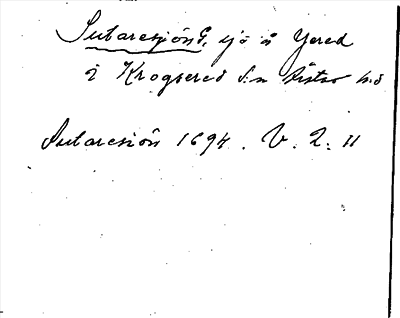 Sutaresjön, sjö å Yered
i Krogsered s:n Årstad h:d
Sutaresiön 1694. V. 2: 11